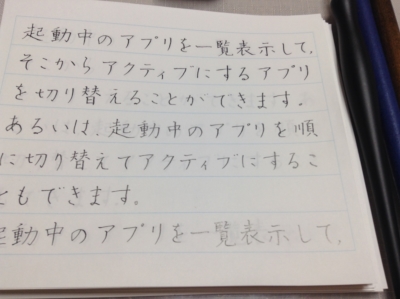 起動中のアプリを一覧表示して,
そこからアクティブにするアプリ
を切り替えることができます。
あるいは、起動中のアプリを順
に切り替えてアクティブにするこ
ともできます。
起動中のアプリを一覧表示して,